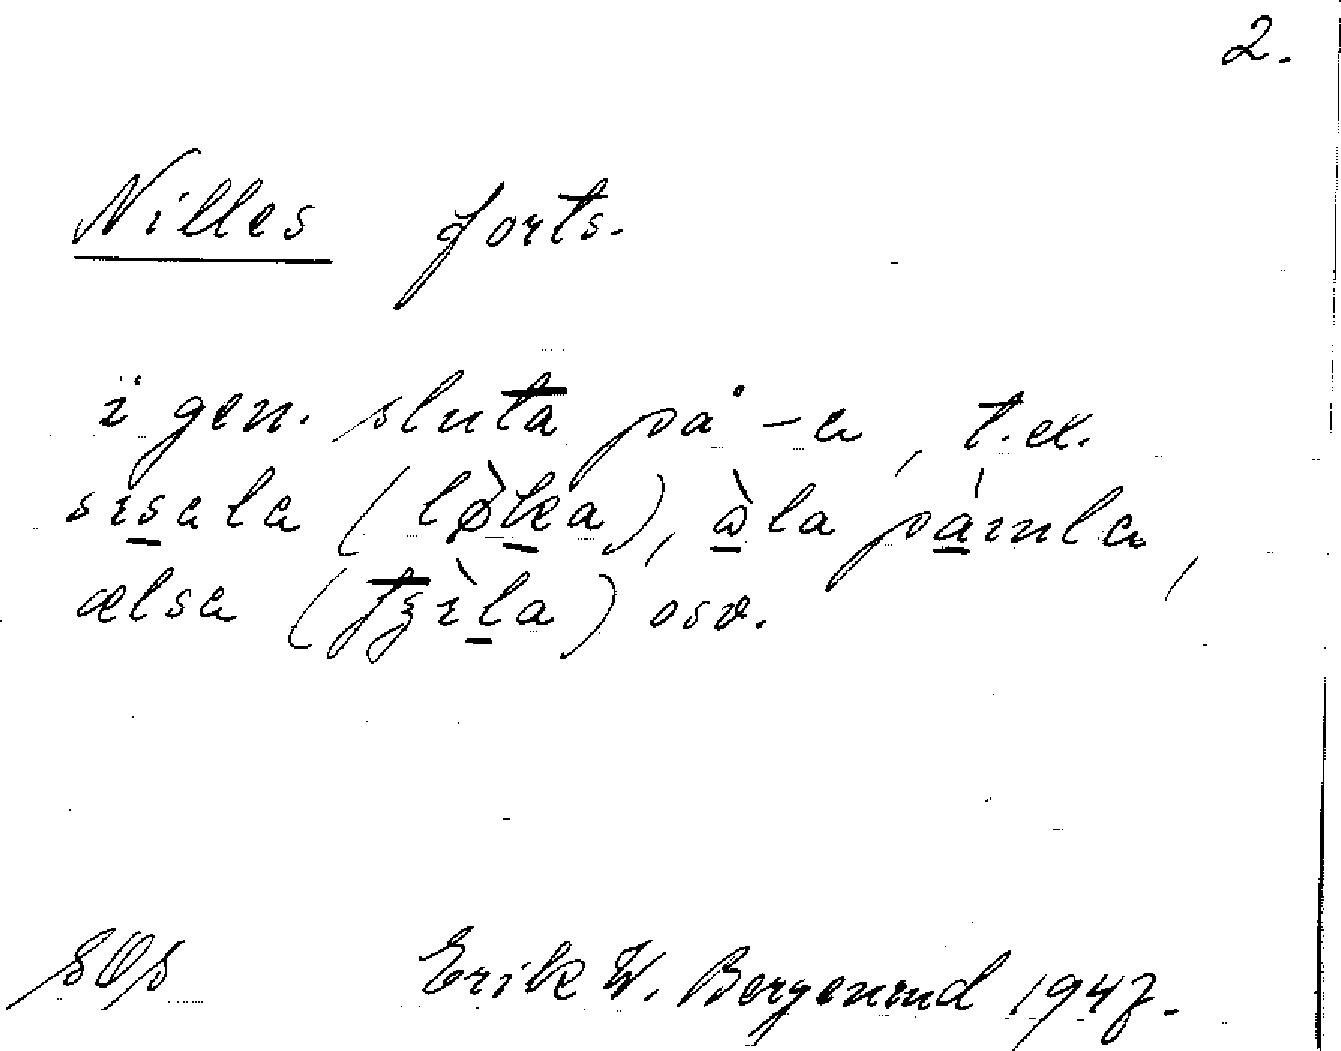 2.
Nilles forts.
i gen. sluta på -a, t.ex.
sɪsala (lø̀ka), àla pámla,
ælsa (fʒɪ̀la) osv.
Erik W. Bergenrud 1947.